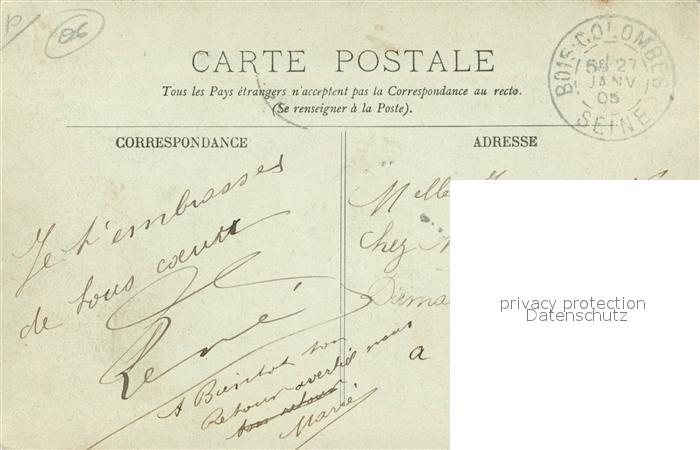 P/
06
CARTE POSTALE
Tous les Pays étrangers n'acceptent pas la Correspondance au recto.
(Se renseigner à la Poste).
BOIS-COLOMBES
5E 27
JANV
05
SEINE
CORRESPONDANCE
ADRESSE
Je t'embrasses
de tous coeur
René
A Bientot ton
Retour avertie nous
ton retour
Marie
Melle
Chez
a
privacy protection
Datenschutz